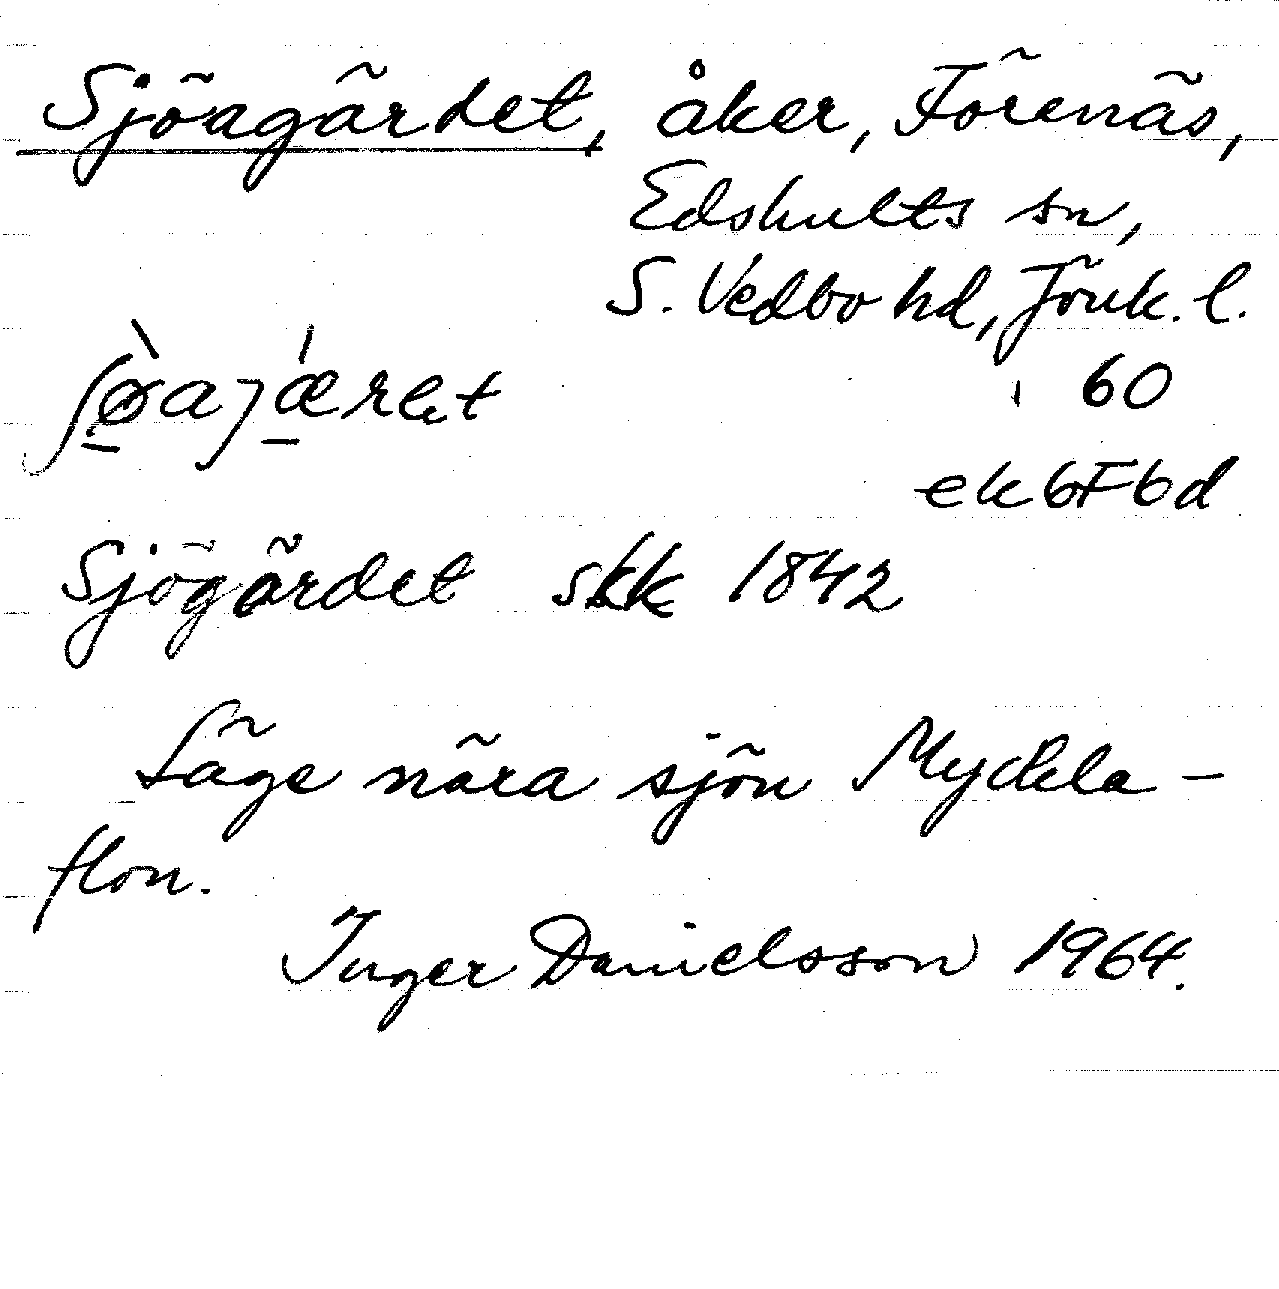 Sjöagärdet, åker, Förenäs,
Edshults sn,
S. Vedbo hd, Jönk. l.
60
ek 6F6d
Sjögärdet skk 1842
Läge nära sjön Myckla-
flon.
Inger Danielsson 1964.